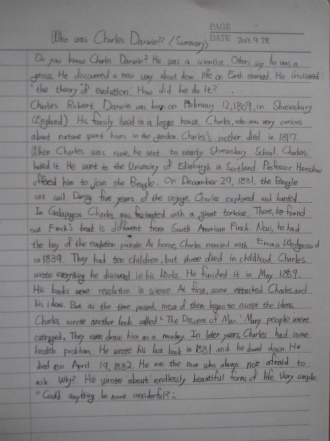 PAGE
Who was Charles Darwin? (Summary) DATE
Do you know Charles Darwin? He was a scientist. Often say, he was a
genius. He discovered a new way about how life on Earth started. He
"the theory of evolution". How did he do it?
Charles Robert Darwin was born on February 12, 1809, in Shrewsbury
(England). His family lived in a large house. Charles, was very curious
about nature spent hours in the garden. Charles's mother died in 1817.
When Charles was nine, he went to nearby Shrewsbury School. Charles
hated it. He went to the University of Edinburgh in Scotland. Professor Henslow
offered him to join the Beagle. On December 27, 1831, the Beagle
set sail. During five years of the voyage, Charles explored and hunted.
In Galapagos, Charles was fascinated with a giant tortoise. There, he found
out Finch's beak is different from South American Finch. Now, he had
the key of the evolution. At home, Charles married with Emma Wedgwood
in 1839. They had ten children, but three died in childhood. Charles
wrote everything he discovered in his books. He finished it in May 1859.
His books were revolution in science. At first, some attacked Charles and
his ideas. But as the time passed, most of them began to accept the ideas.
Charles wrote another book called "The Descent of Man." Many people were
outraged. They even draw him as a monkey. In later years, Charles had some
health problems. He wrote his last book in 1881 and he slowed down. He
died on April 19, 1882. He was the man who always not afraid to
ask why? He wrote about endlessly beautiful forms of life. Very simple.
"Could anything be more wonderful?"